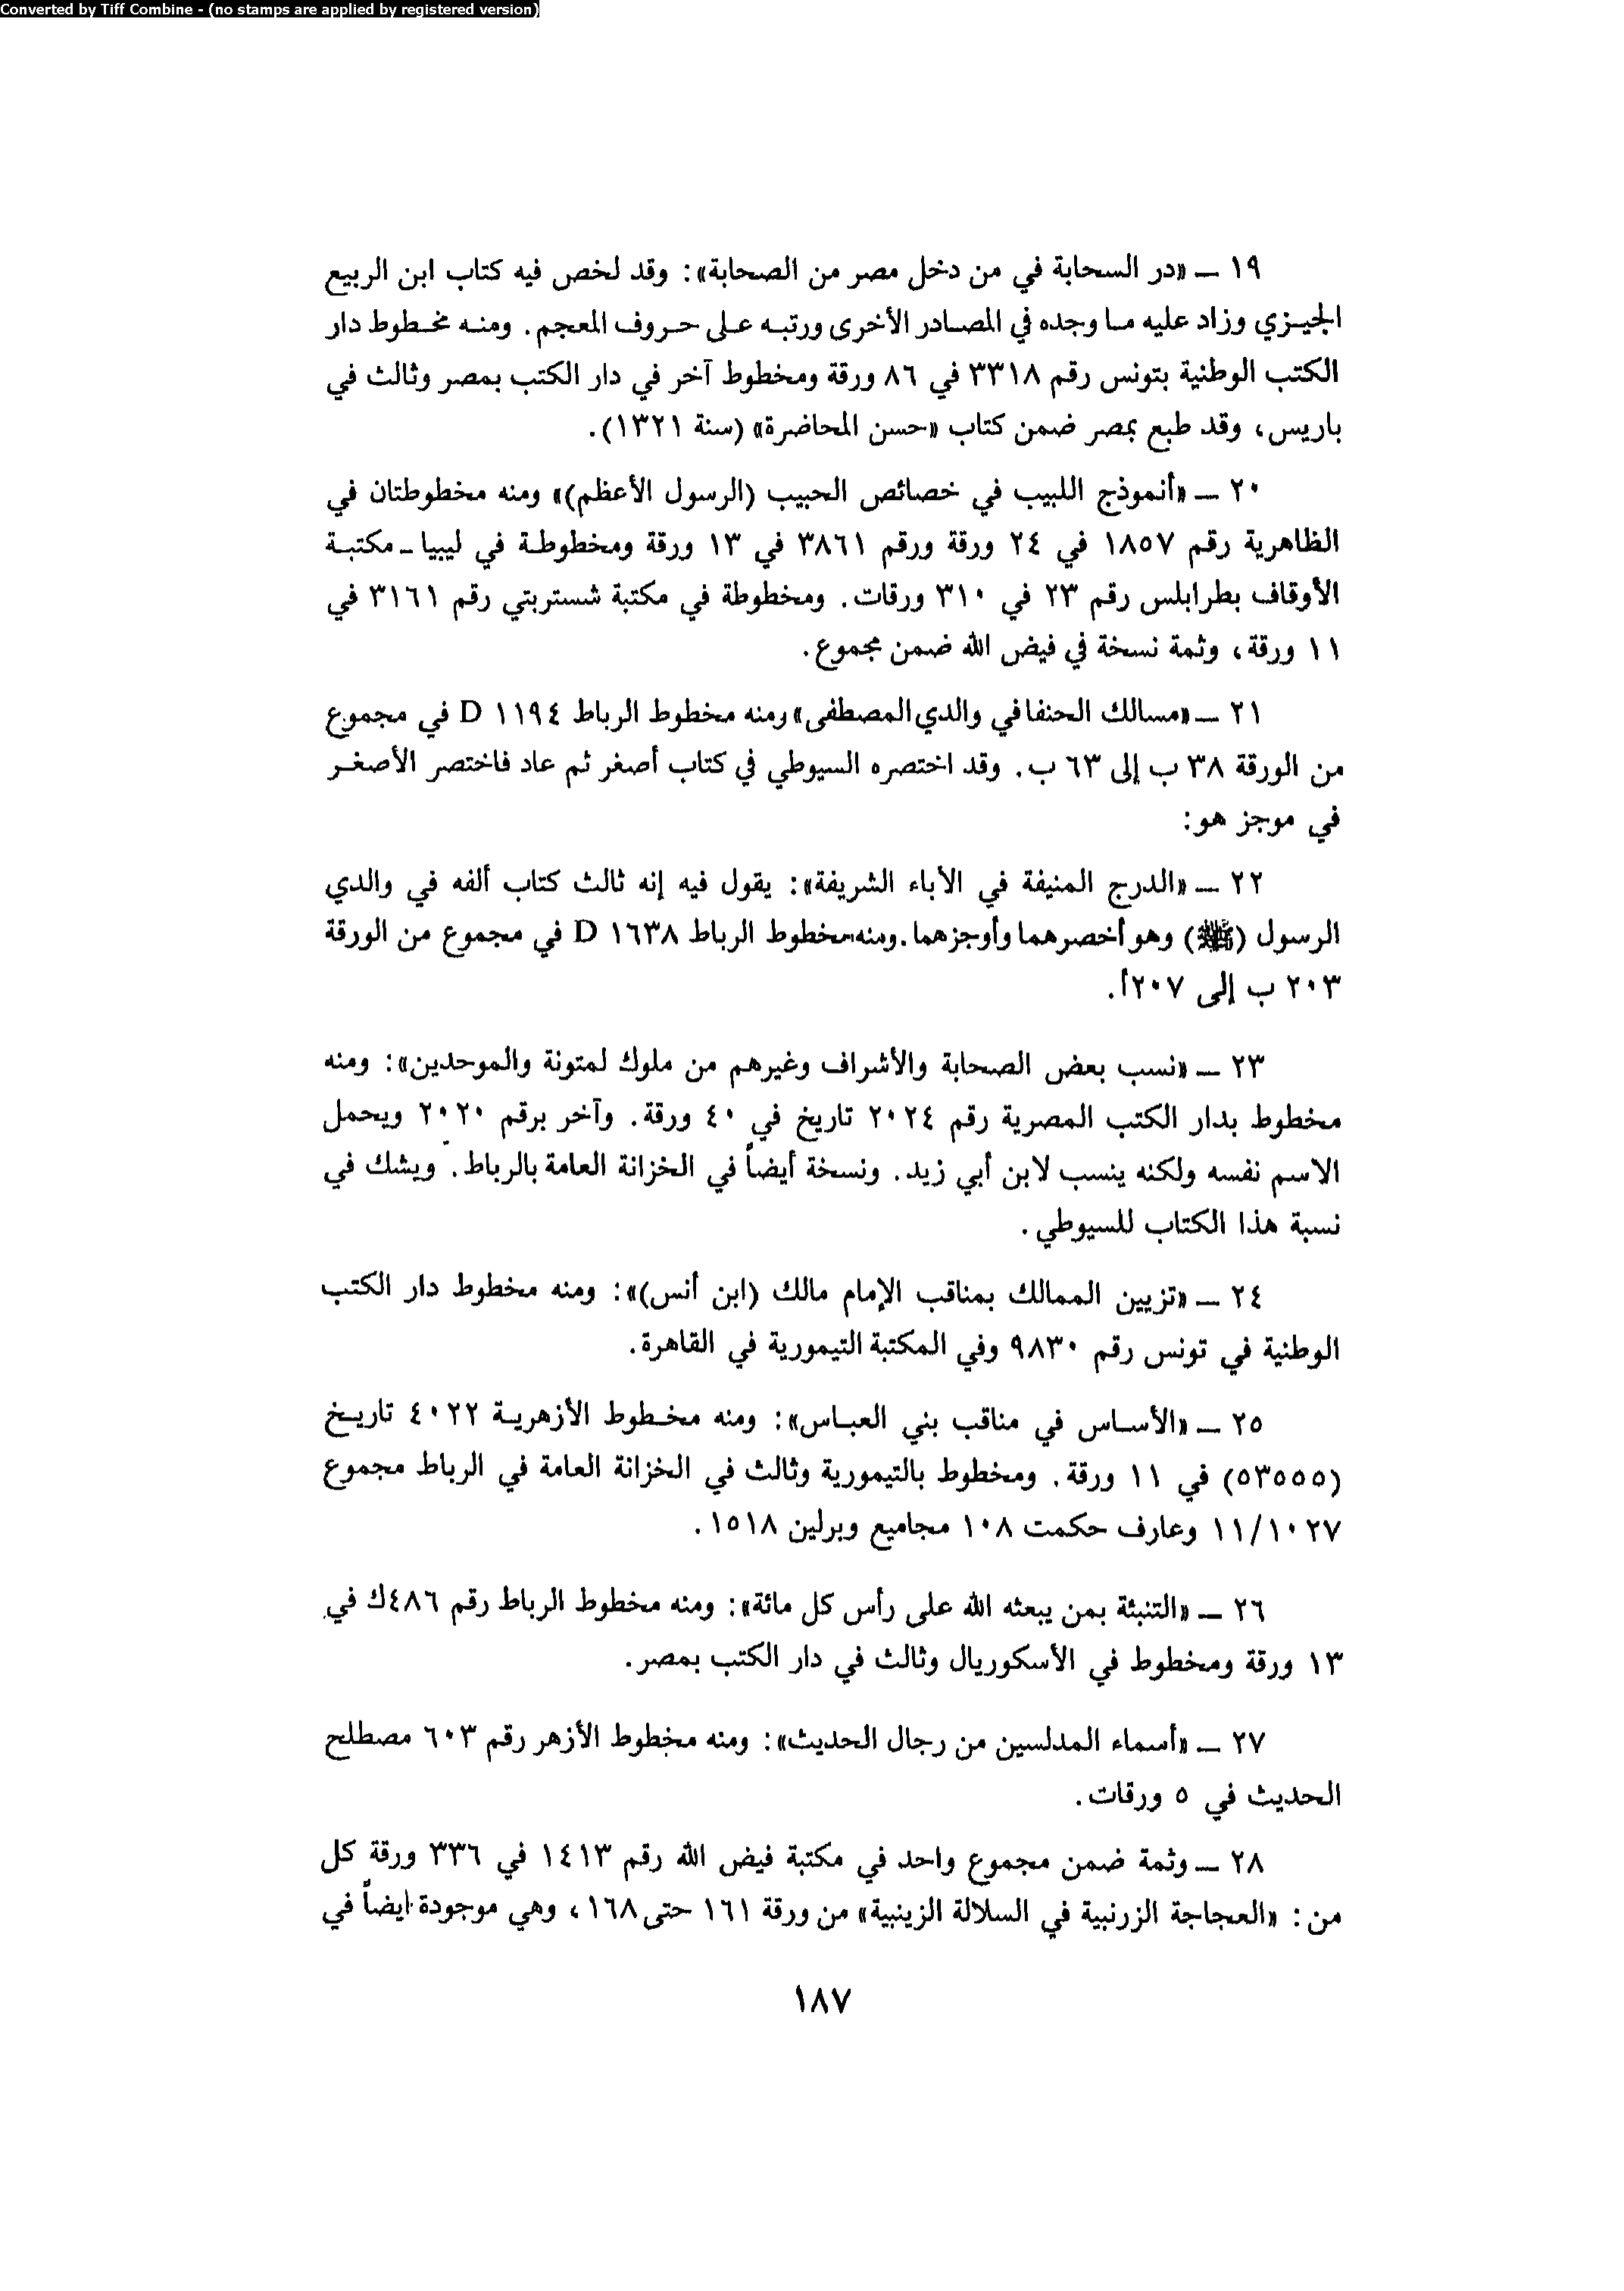 Converted by Tiff Combine - (no stamps are applied by registered version)
١٩ — «در السحابة في من دخل مصر من الصحابة»: وقد لخص فيه كتاب ابن الربيع
الجيزي وزاد عليه ما وجده في المصادر الأخرى ورتبه على حروف المعجم. ومنه مخطوط دار
الكتب الوطنية بتونس رقم ٣٣١٨ في ٨٦ ورقة ومخطوط آخر في دار الكتب بمصر وثالث في
باريس، وقد طبع بمصر ضمن كتاب «حسن المحاضرة» (سنة ١٣٢١).
٢٠ — «أنموذج اللبيب في خصائص الحبيب (الرسول الأعظم)» ومنه مخطوطتان في
الظاهرية رقم ١٨٥٧ في ٢٤ ورقة ورقم ٣٨٦١ في ١٣ ورقة ومخطوطة في ليبيا - مكتبة
الأوقاف بطرابلس رقم ٢٣ في ٣١٠ ورقات. ومخطوطة في مكتبة شستربتي رقم ٣١٦١ في
١١ ورقة، وثمة نسخة في فيض الله ضمن مجموع.
٢١ — «مسالك الحنفا في والدي المصطفى» ومنه مخطوط الرباط ١١٩٤ D في مجموع
من الورقة ٣٨ ب إلى ٦٣ ب. وقد اختصره السيوطي في كتاب أصغر ثم عاد فاختصر الأصغر
في موجز هو:
٢٢ — «الدرج المنيفة في الآباء الشريفة»: يقول فيه إنه ثالث كتاب ألفه في والدي
الرسول (ﷺ) وهو أخصرهما وأوجزهما. ومنه مخطوط الرباط ١٦٣٨ D في مجموع من الورقة
٢٠٣ ب إلى ٢٠٧أ.
٢٣ — «نسب بعض الصحابة والأشراف وغيرهم من ملوك لمتونة والموحدين»: ومنه
مخطوط بدار الكتب المصرية رقم ٢٠٢٤ تاريخ في ٤٠ ورقة. وآخر برقم ٢٠٢٠ ويحمل
الاسم نفسه ولكنه ينسب لابن أبي زيد. ونسخة أيضاً في الخزانة العامة بالرباط. ويشك في
نسبة هذا الكتاب للسيوطي.
٢٤ — «تزيين الممالك بمناقب الإمام مالك (ابن أنس)»: ومنه مخطوط دار الكتب
الوطنية في تونس رقم ٩٨٣٠ وفي المكتبة التيمورية في القاهرة.
٢٥ — «الأساس في مناقب بني العباس»: ومنه مخطوط الأزهرية ٤٠٢٢ تاريخ
(٥٣٥٥٥) في ١١ ورقة. ومخطوط بالتيمورية وثالث في الخزانة العامة في الرباط مجموع
١١/١٠٢٧ وعارف حكمت ١٠٨ مجاميع وبرلين ١٥١٨.
٢٦ — «التنبئة بمن يبعثه الله على رأس كل مائة»: ومنه مخطوط الرباط رقم ٤٨٦ك في
١٣ ورقة ومخطوط في الأسكوريال وثالث في دار الكتب بمصر.
٢٧ — «أسماء المدلسين من رجال الحديث»: ومنه مخطوط الأزهر رقم ٦٠٣ مصطلح
الحديث في ٥ ورقات.
٢٨ — وثمة ضمن مجموع واحد في مكتبة فيض الله رقم ١٤١٣ في ٣٣٦ ورقة كل
من: «العجاجة الزرنبية في السلالة الزينبية» من ورقة ١٦١ حتى ١٦٨، وهي موجودة ايضاً في
١٨٧